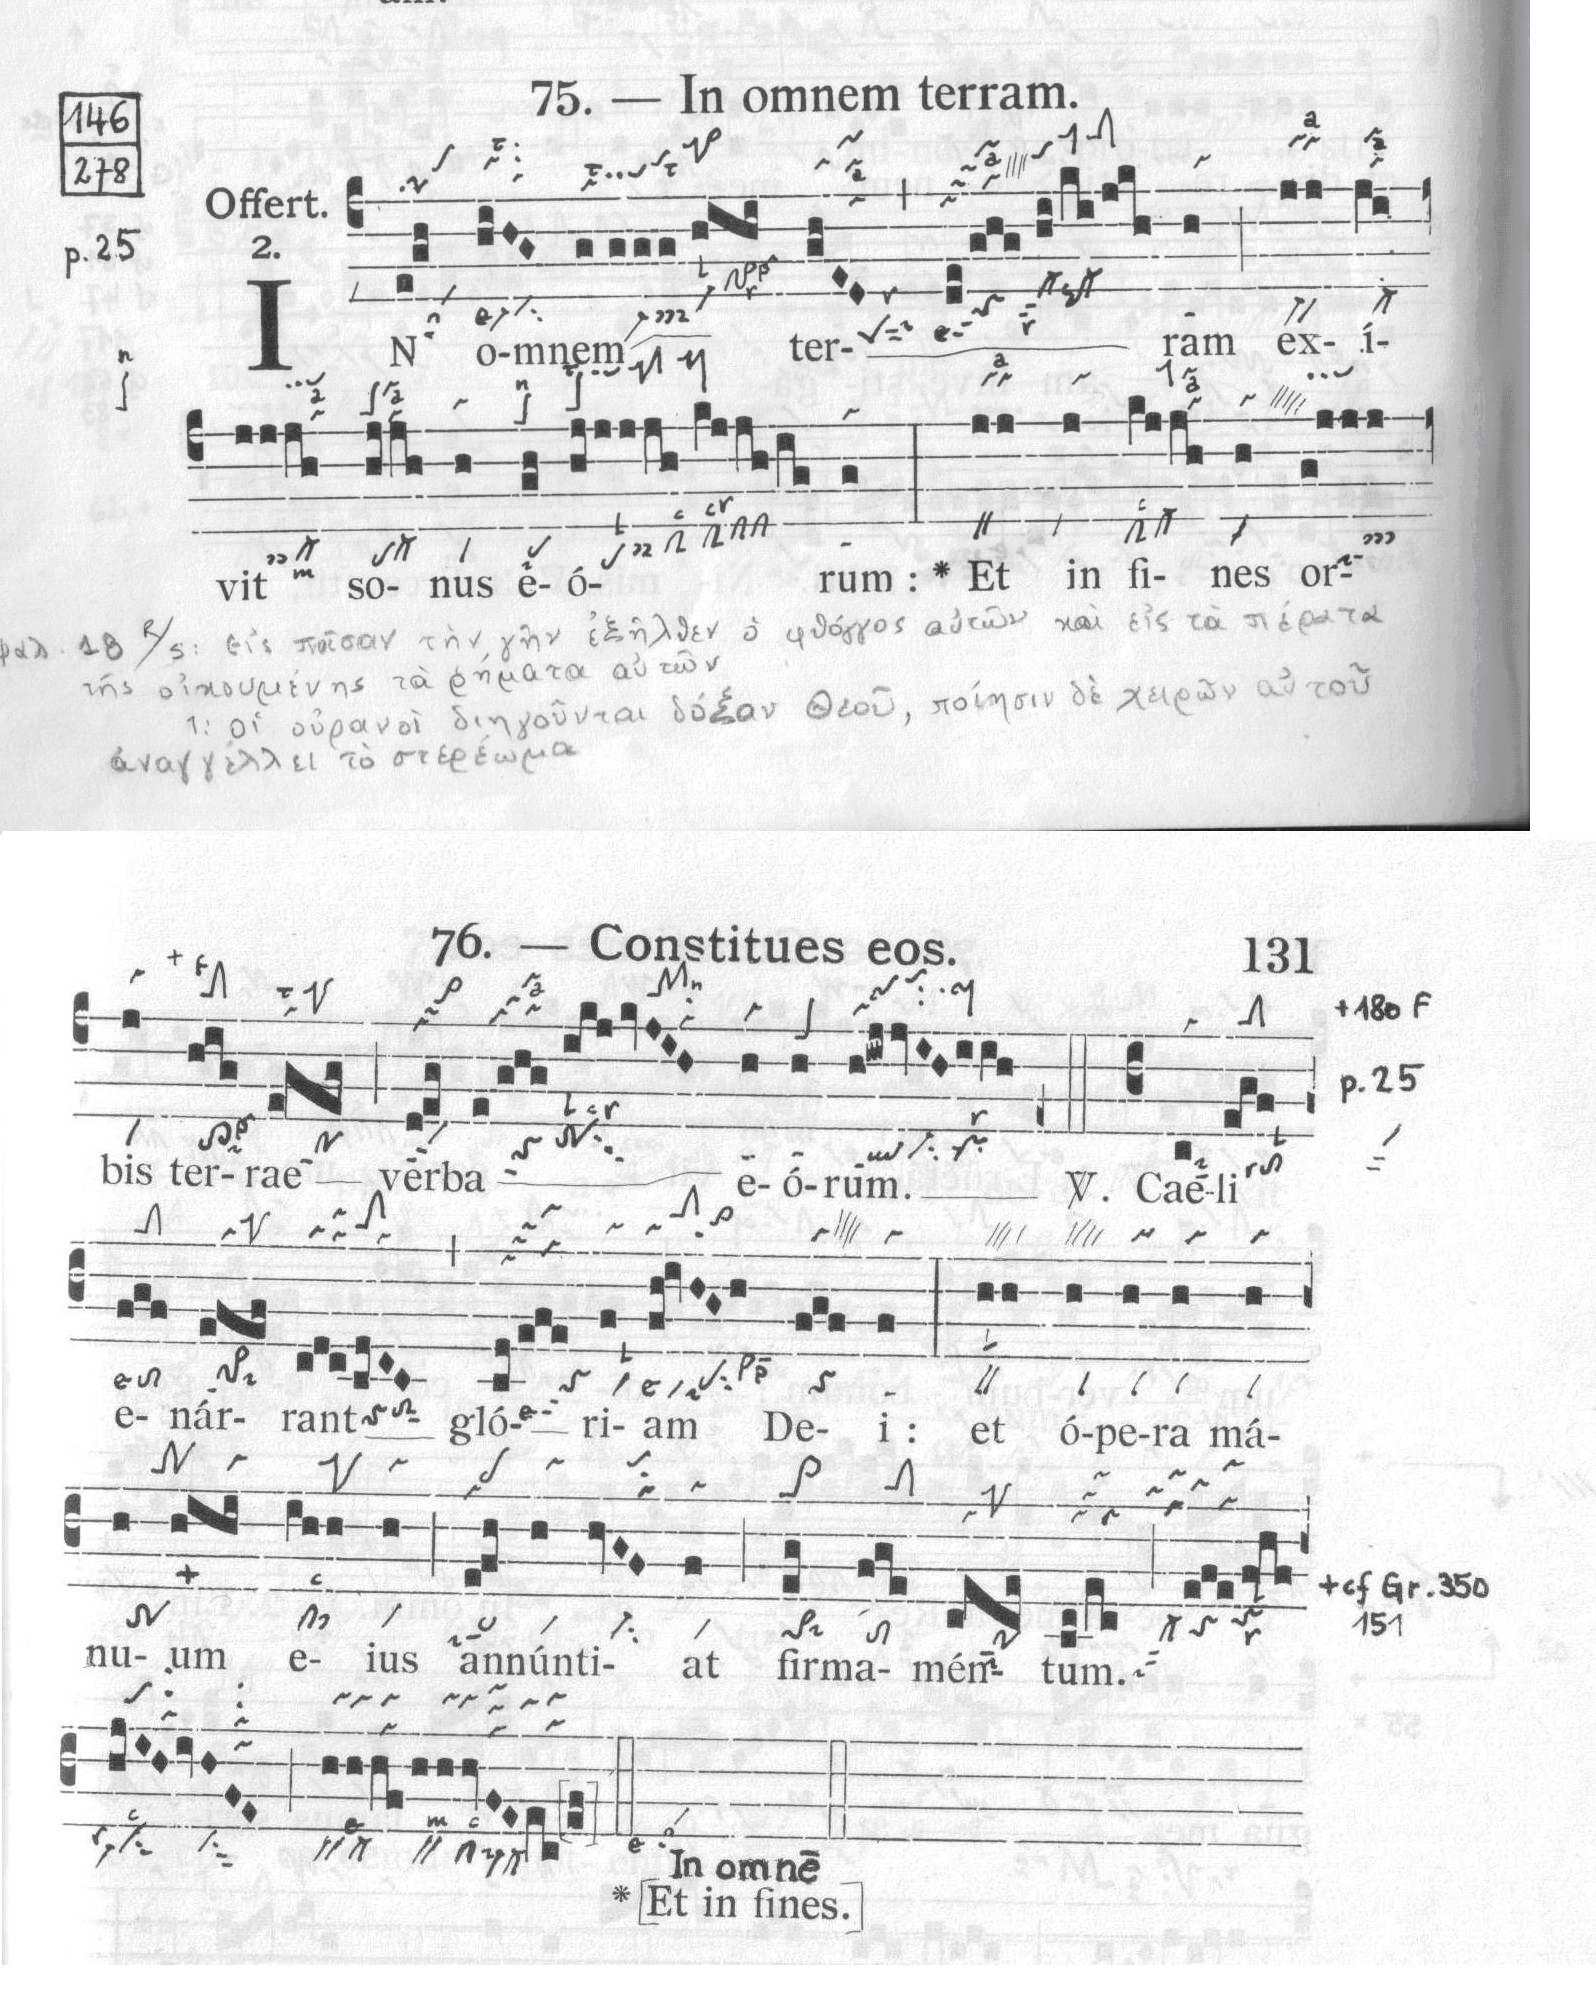 75. — In omnem terram.
146
278
Offert.
p. 25
2.
IN o-mnem ter- ram ex- í-
vit so- nus e- ó- rum : * Et in fi- nes or-
ψαλ. 18 R/5: εἰς πᾶσαν τὴν γῆν ἐξῆλθεν ὁ φθόγγος αὐτῶν καὶ εἰς τὰ πέρατα
τῆς οἰκουμένης τὰ ῥήματα αὐτῶν
1: οἱ οὐρανοὶ διηγοῦνται δόξαν Θεοῦ, ποίησιν δὲ χειρῶν αὐτοῦ
ἀναγγέλλει τὸ στερέωμα
76. — Constitues eos. 131
+180 F
p. 25
bis ter- rae verba e- ó-rum. ℣. Caé-li
e- nár- rant gló- ri- am De- i : et ó-pe-ra má-
+cf Gr. 350
151
nu- um e- ius annúnti- at firma- mén- tum.
In omnē
* [Et in fines.]